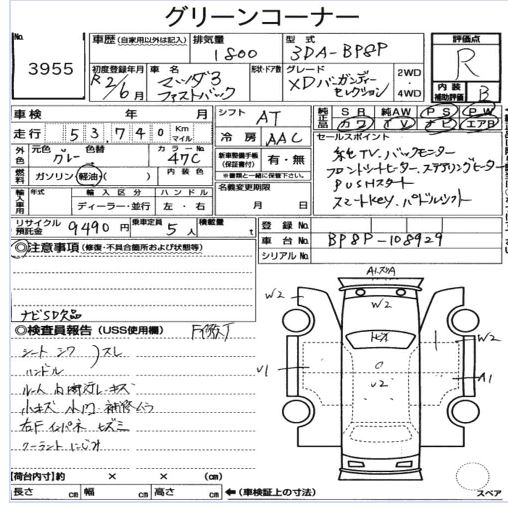 グリーンコーナー
No.
3955
車歴 (自家用以外は記入)
排気量
1800
型式
3DA-BP8P
評価点
R
初度登録年月
R2/6月
車名
マツダ3
ファストバック
形状・ドア数
グレード
XDバーガンディー
セレクション
2WD
4WD
内装
補助評価
B
車検 年 月
シフト
AT
純正品
SR AW PS PW
カワ TV ナビ エアB
走行 53,740 Km マイル
冷房
AAC
セールスポイント
純TV.バックモニター
フロントシートヒーター.ステアリングヒーター
PUSHスタート
スマートKEY.パドルシフト
外色
元色 グレー
色替
カラーNo.
47C
新車整備手帳
(保証書付)
有・無
※書類と一緒に保管して下さい。
燃料
ガソリン・軽油・( )
内装色
名義変更期限
月 日
輸入車用
年式
輸入区分
ディーラー・並行
ハンドル
左・右
リサイクル預託金
9490 円
乗車定員
5人
積載量
t
登録No.
車台No.
BP8P-108929
シリアルNo.
◎注意事項 (修復・不具合箇所および状態等)
ナビSD欠品
◎検査員報告 (USS使用欄)
シート
スレ
ハンドル
小キズ
右F インパネ
クーラント にじみ
W2
W2
U1
U2
W2
A1
スペア
【荷台内寸】約 × × (cm)
長さ cm 幅 cm 高さ cm
←(車検証上の寸法)